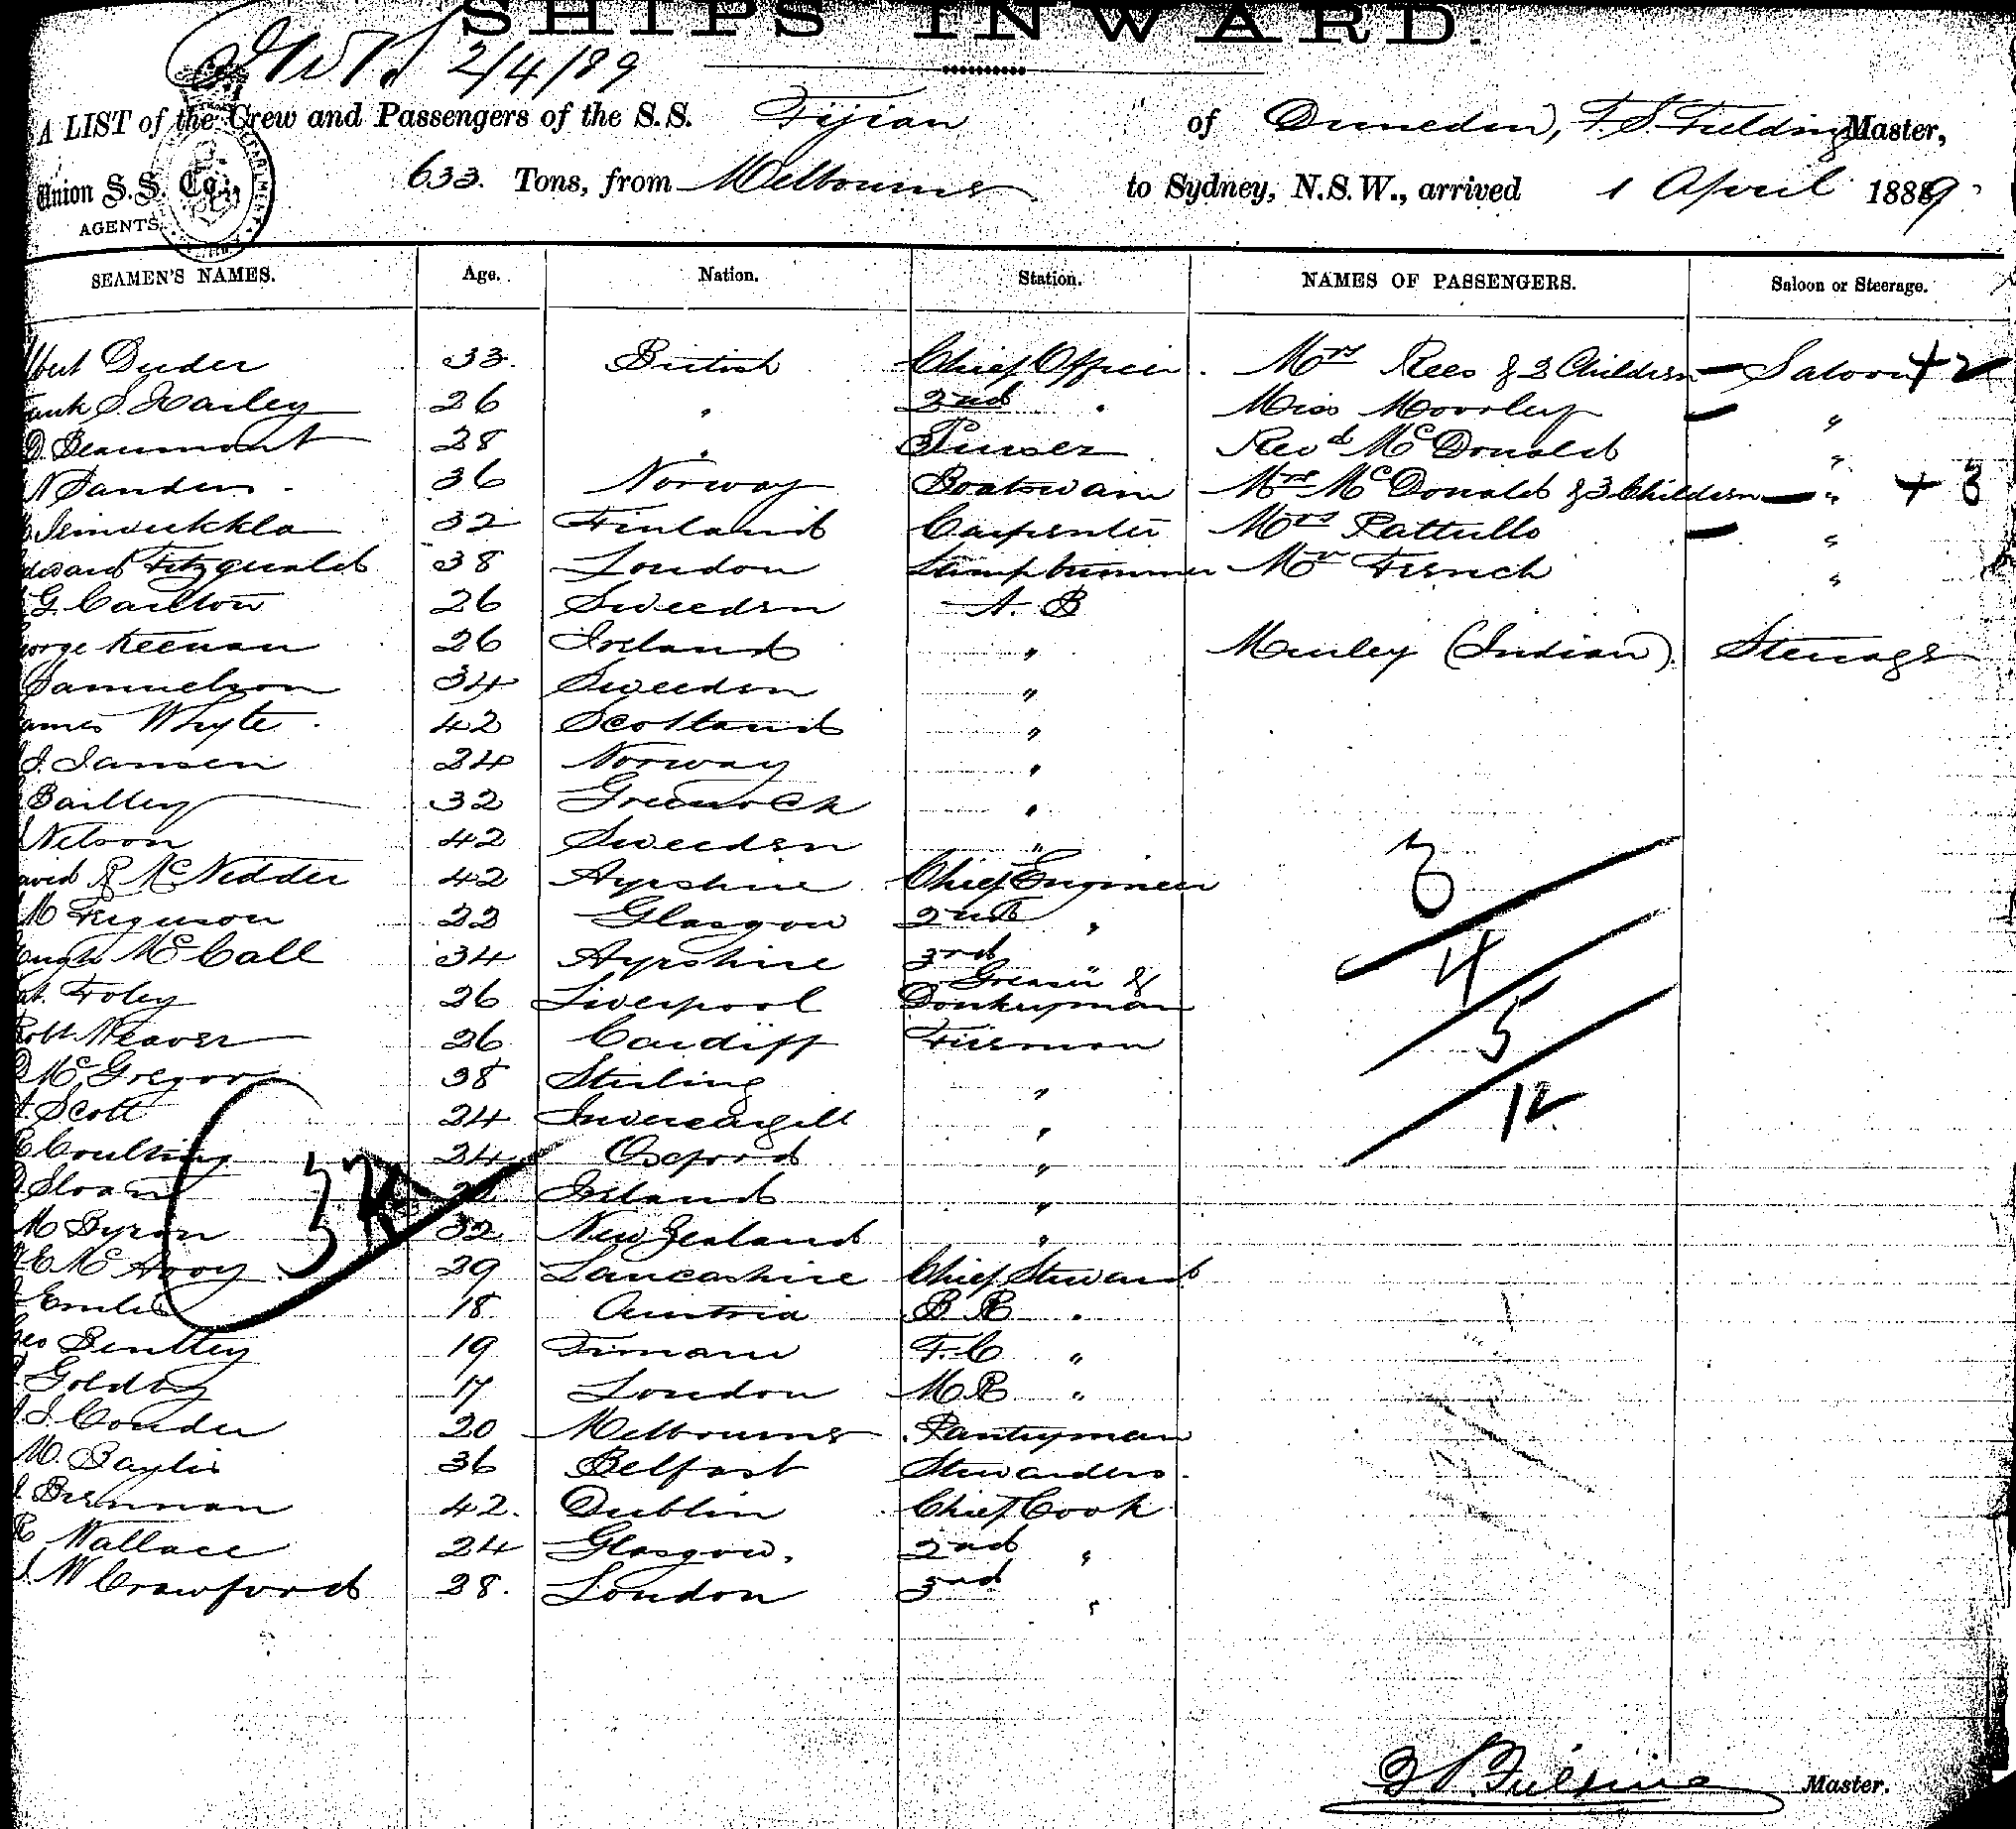 SHIPS INWARD.
2/4/89
A LIST of the Crew and Passengers of the S.S. Fijian of Dunedin, F. S. Fielding Master,
Union S.S. Co., AGENTS. 633. Tons, from Melbourne to Sydney, N.S.W., arrived 1 April 1889
SEAMEN'S NAMES. Age. Nation. Station. NAMES OF PASSENGERS. Saloon or Steerage.
Duder 33. British Chief Officer. Mrs Rees & 2 Children — Saloon + 2
S. Harley 26 " 2nd " Miss Moorley — "
D. Beaumont 28 " Purser Revd McDonald "
N Sanders 36 Norway Boatswain Mrs McDonald & 3 Children — " + 3
32 Finland Carpenter Mrs Pattullo — "
Fitzgerald 38 London Lamp trimmer Mr French "
G. Carlton 26 Sweeden A. B
Keenan 26 Ireland " Manley (Indian) Steerage
Samuelson 34 Sweeden "
James Whyte. 42 Scotland "
J. Jansen 24 Norway "
Bailley 32 Greenock "
Nelson 42 Sweeden "
David & McNedder 42 Ayrshire Chief Engineer
M Ferguson 22 Glasgow 2nd "
Hugh McCall 34 Ayrshire 3rd "
Foley 26 Liverpool Greaser & Donkeyman
Robt Weaver 26 Cardiff Fireman
McGregor 38 Stirling "
Scott 24 Invercargill "
Coulting 24 Oxford "
Sloan Ireland "
M Byron 32 New Zealand "
E McAvoy 29 Lancashire Chief Steward
Emile 18 Austria B. R "
Geo Bentley 19 F. C "
Goldby 17 London M. R "
J. Conder 20 Melbourne Pantryman
M. Baylis 36 Belfast Stewardess.
Brennan 42. Dublin Chief Cook
Wallace 24 Glasgow. 2nd "
W Crawford 28. London 3rd "
3
4
5
12
F S Fielding Master.